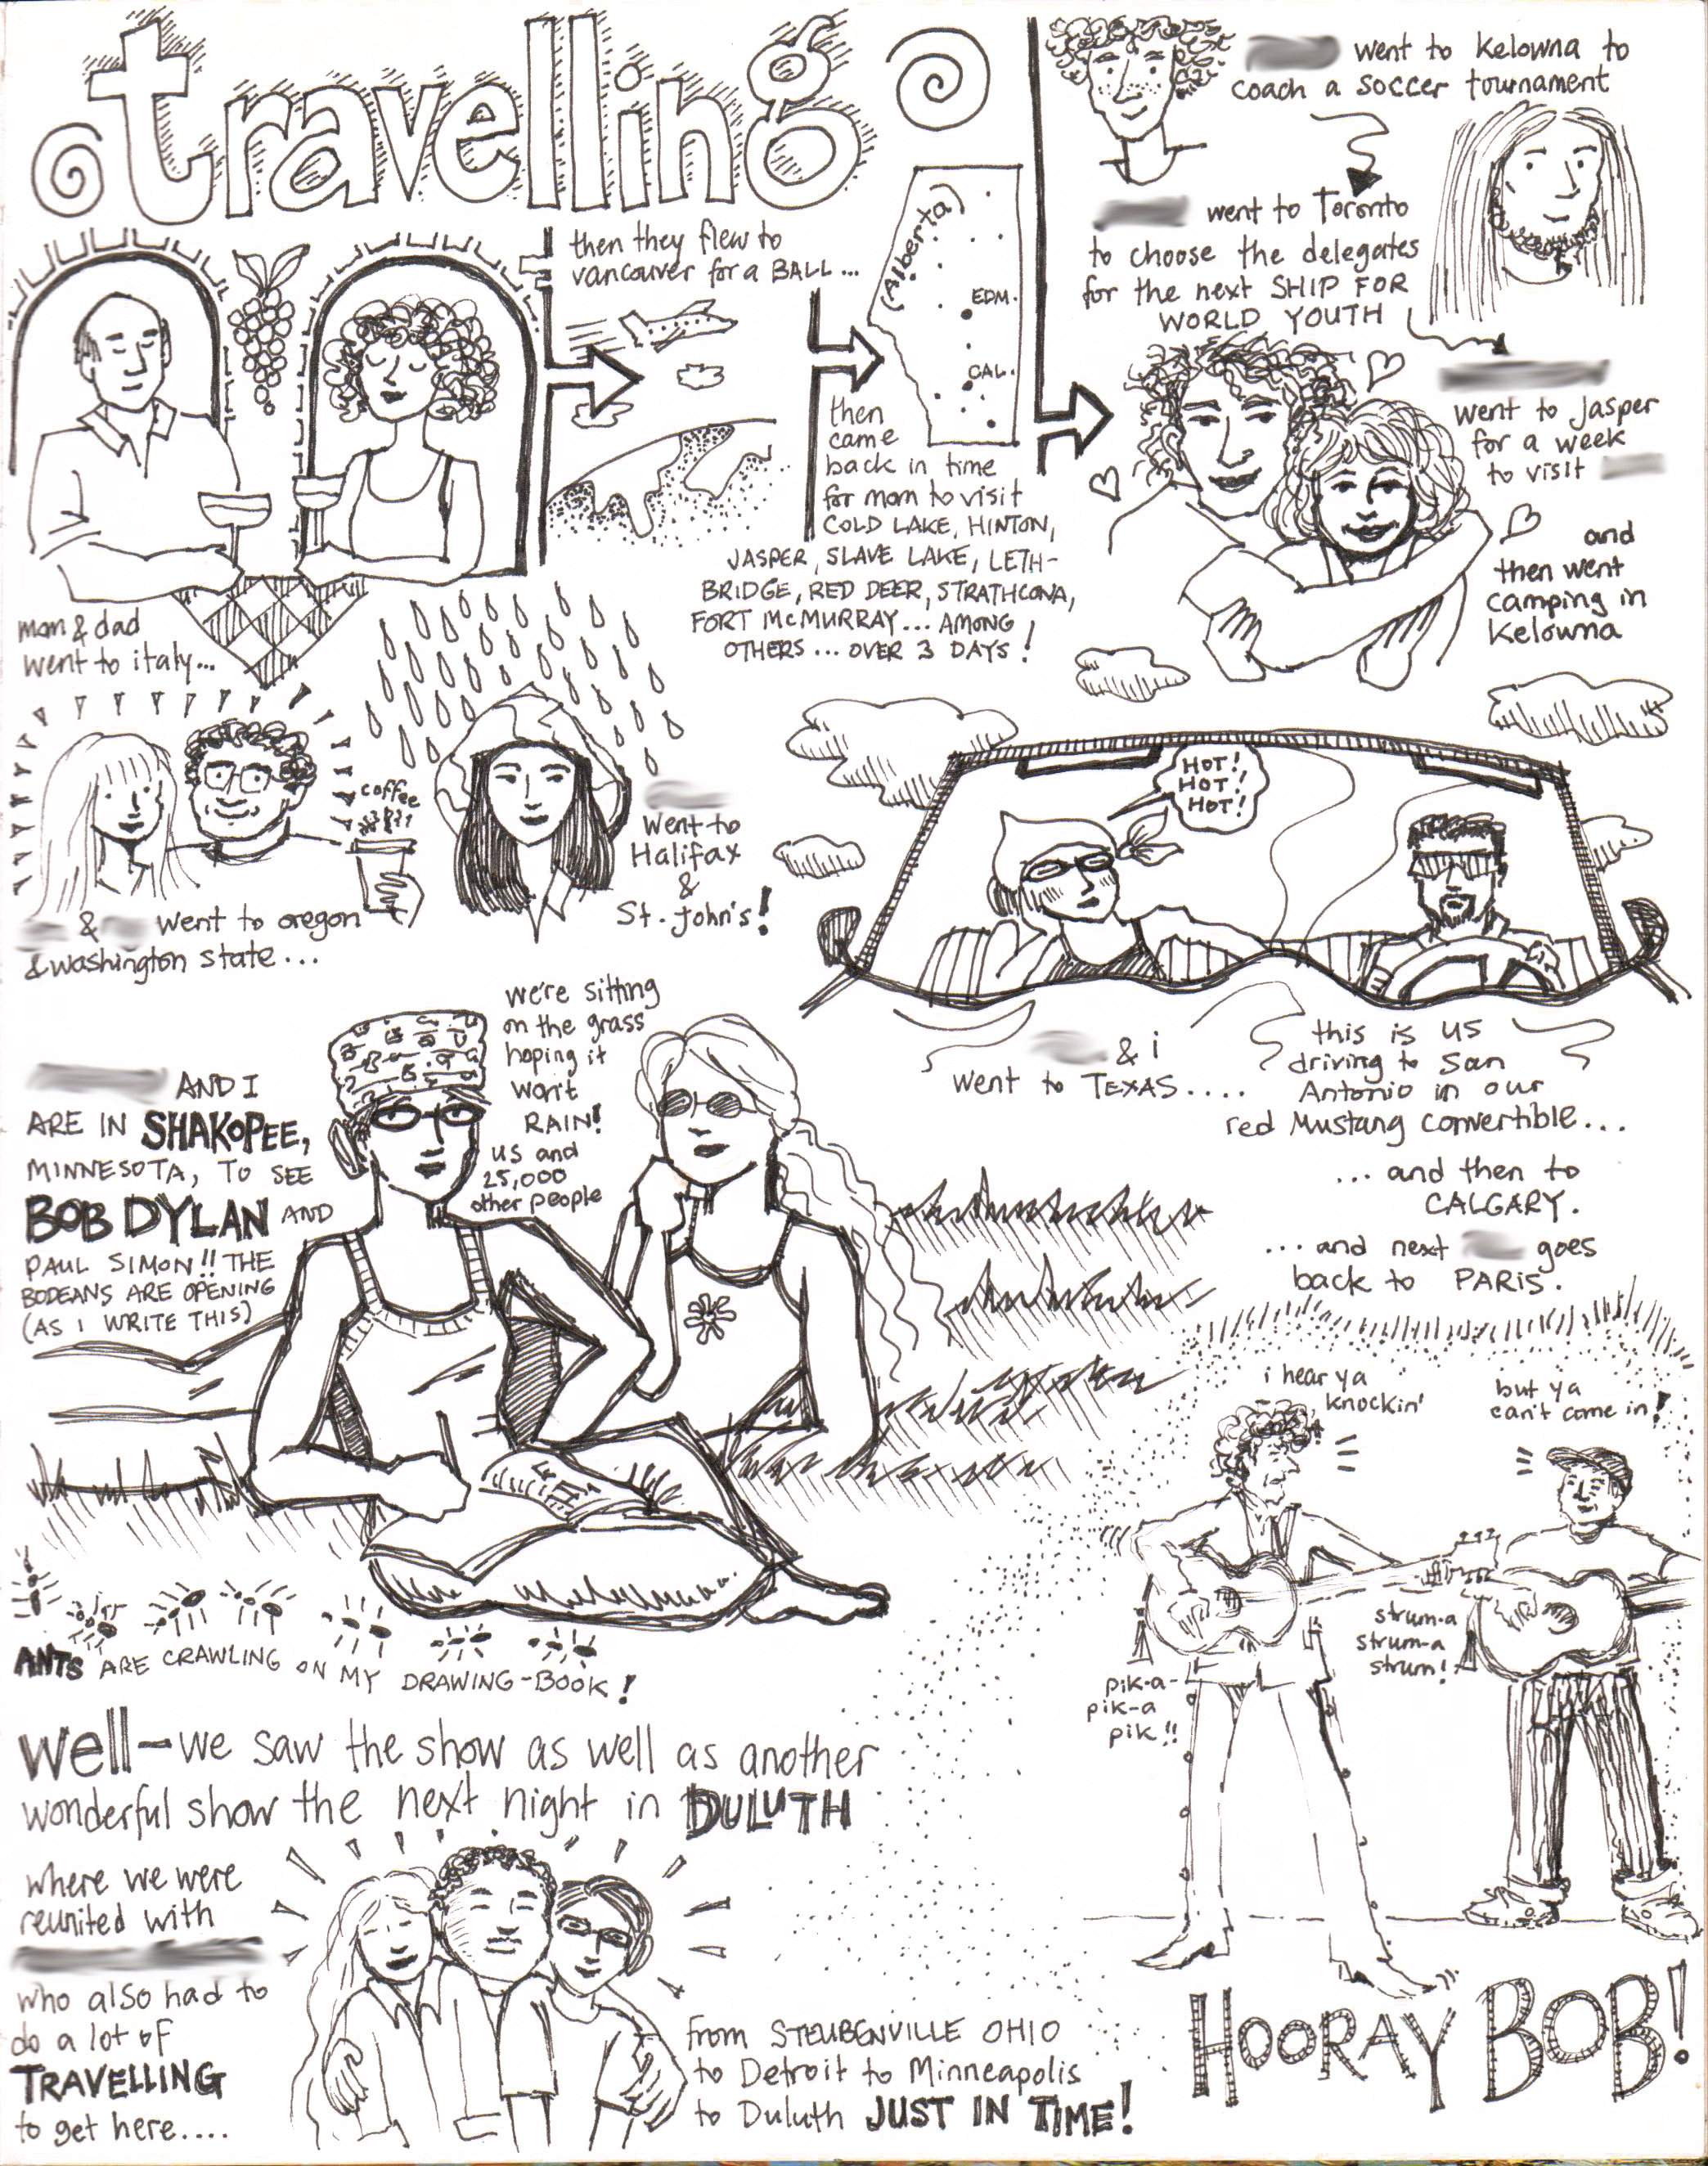 travelling
mom & dad
went to italy...
then they flew to
vancouver for a BALL...
(Alberta)
EDM.
CAL.
then
came
back in time
for mom to visit
COLD LAKE, HINTON,
JASPER, SLAVE LAKE, LETH-
BRIDGE, RED DEER, STRATHCONA,
FORT McMURRAY... AMONG
OTHERS... OVER 3 DAYS!
went to Kelowna to
coach a soccer tournament
went to Toronto
to choose the delegates
for the next SHIP FOR
WORLD YOUTH
went to Jasper
for a week
to visit
and
then went
camping in
Kelowna
coffee
& went to oregon
& washington state...
Went to
Halifax
&
St. John's!
HOT!
HOT!
HOT!
& i
went to TEXAS....
this is us
driving to San
Antonio in our
red Mustang convertible...
...and then to
CALGARY.
...and next goes
back to PARIS.
AND I
ARE IN SHAKOPEE,
MINNESOTA, TO SEE
BOB DYLAN AND
PAUL SIMON!! THE
BODEANS ARE OPENING
(AS I WRITE THIS)
we're sitting
on the grass
hoping it
won't
RAIN!
us and
25,000
other people
ANTS ARE CRAWLING ON MY DRAWING-BOOK!
i hear ya
knockin'
but ya
can't come in!
pik-a-
pik-a
pik!!
strum-a
strum-a
strum!
well—we saw the show as well as another
wonderful show the next night in DULUTH
where we were
reunited with
who also had to
do a lot of
TRAVELLING
to get here....
from STEUBENVILLE OHIO
to Detroit to Minneapolis
to Duluth JUST IN TIME!
HOORAY BOB!